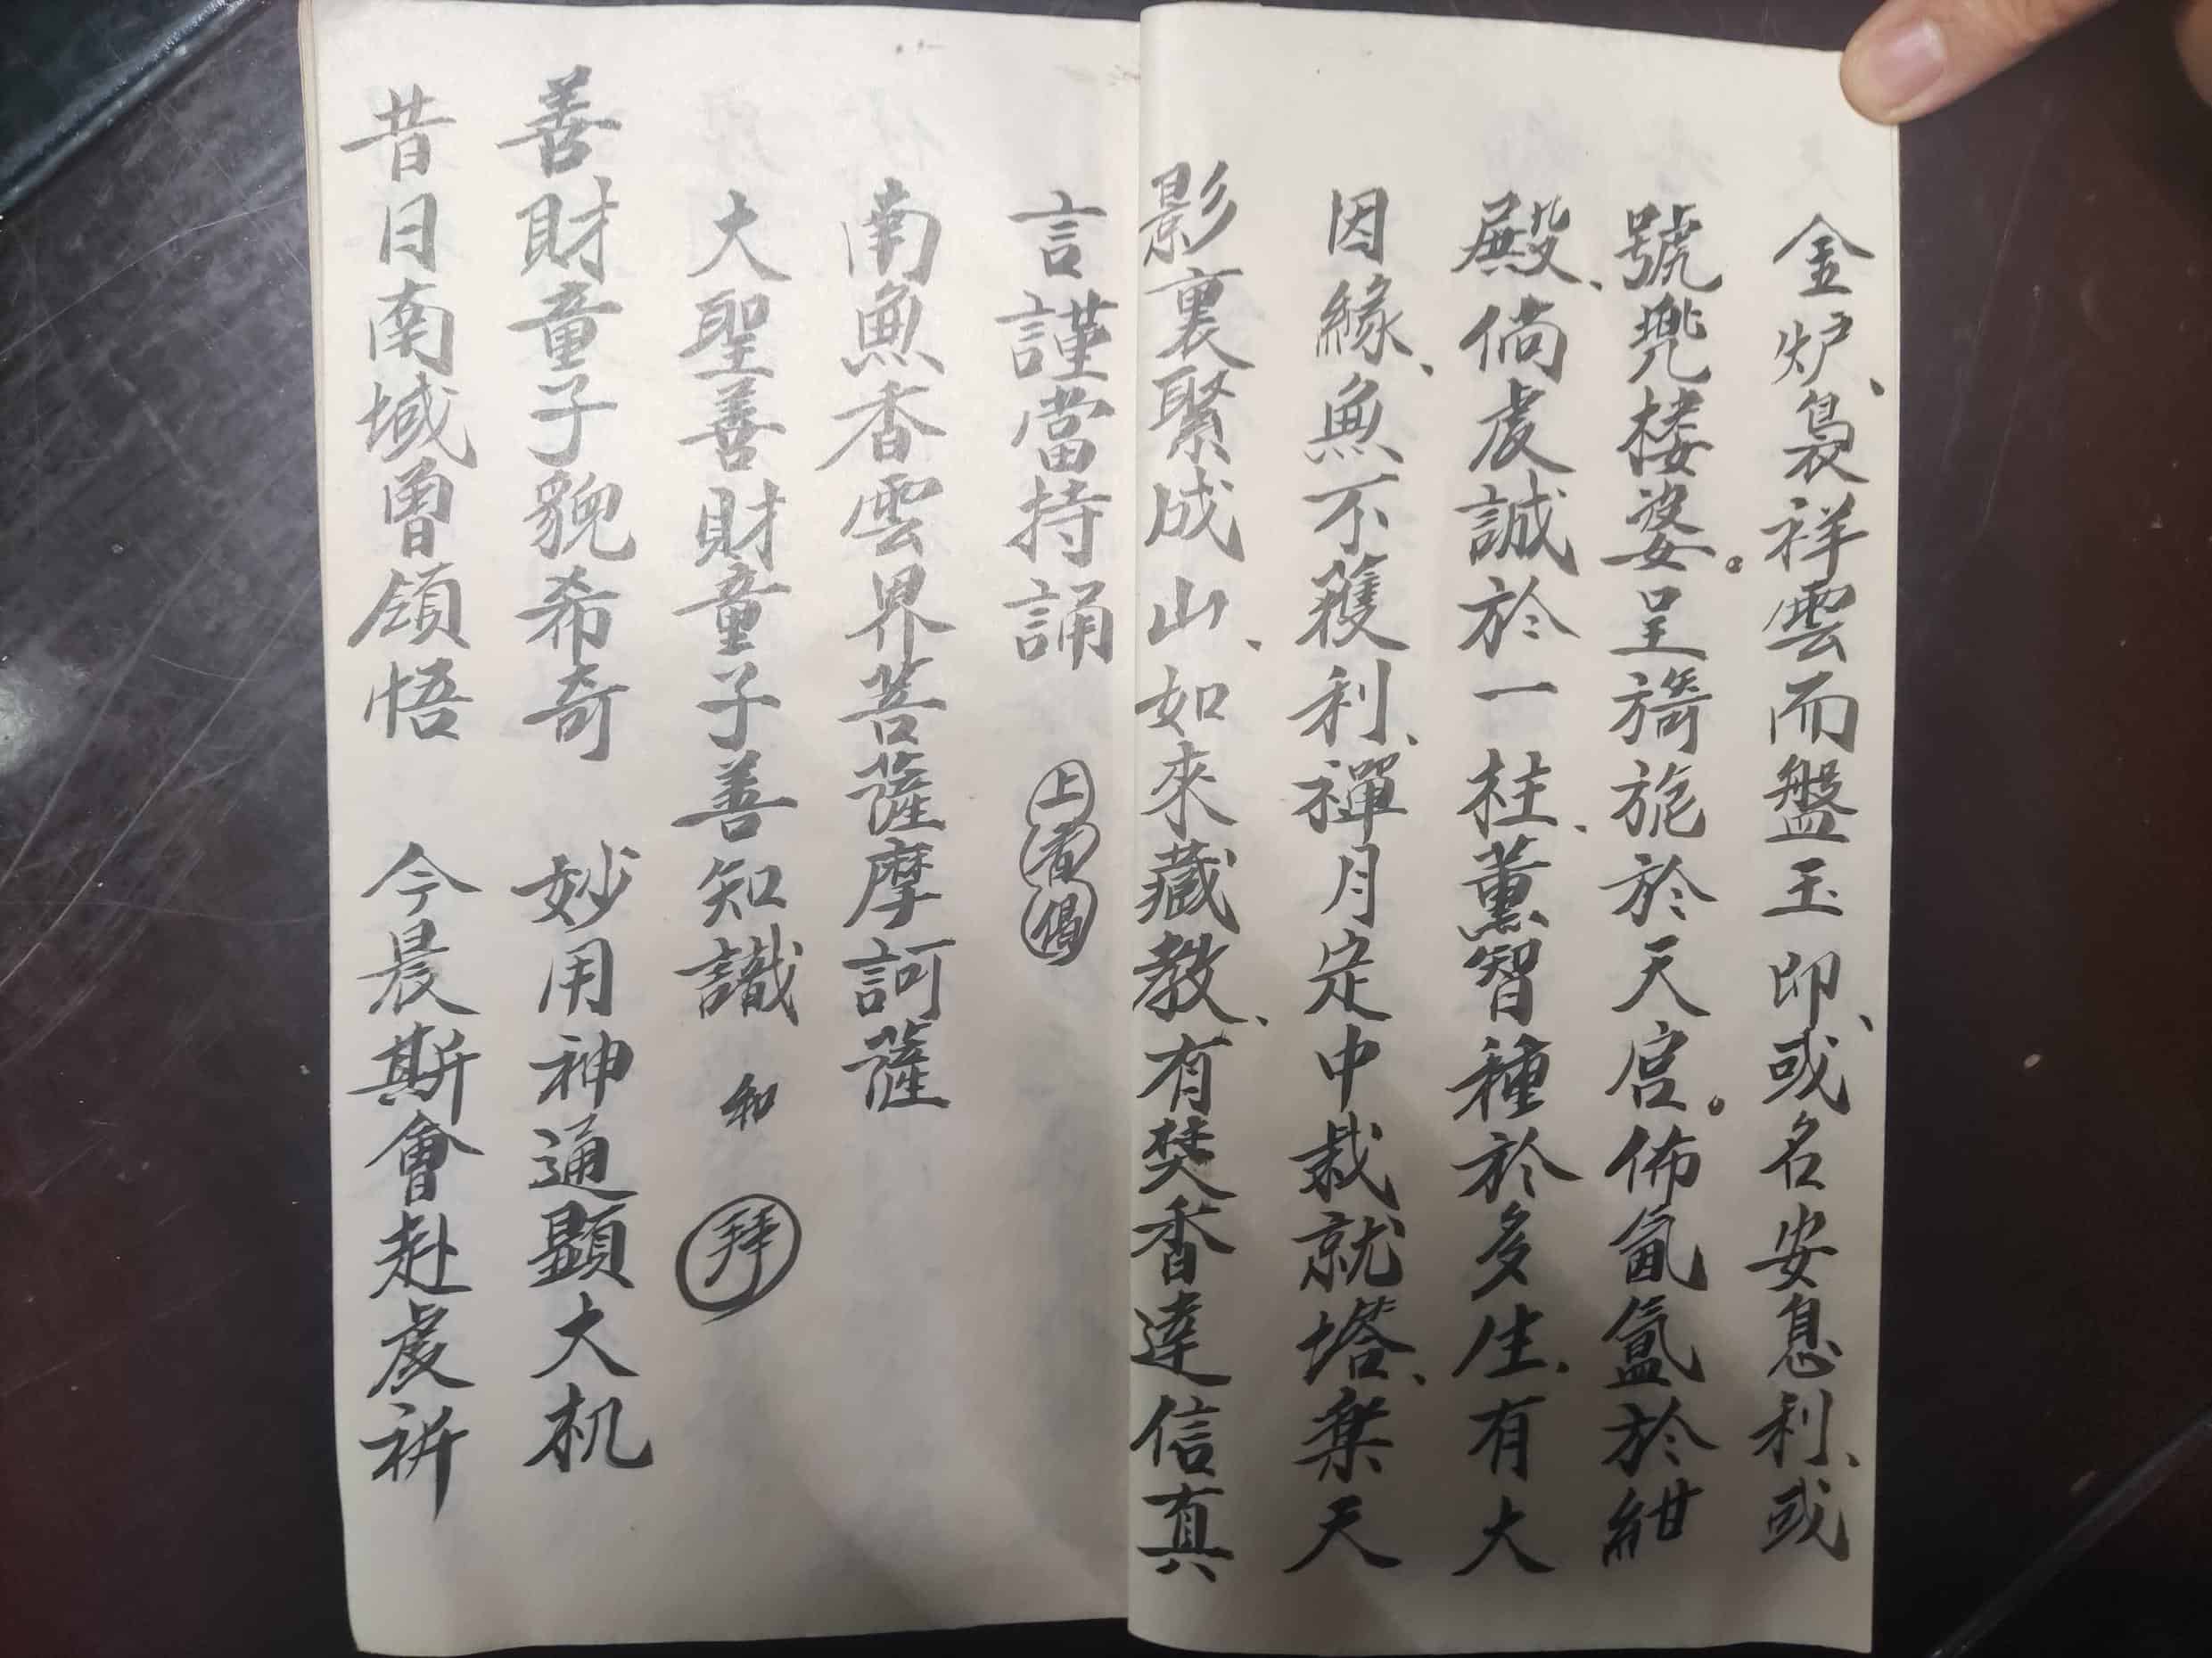 金炉、裊祥雲而盤玉印、或名安息利、或
號兠楼婆。呈旖旎於天宫。佈氤氲於紺
殿、倘虔誠於一柱、薰智種於多生、有大
因緣、無不獲利、禪月定中裁就塔、棄天
影裏緊成山、如來藏教、有焚香達信真
言謹當持誦 上香偈
南無香雲界菩薩摩訶薩
大聖善財童子善知識 和 拜
善財童子貌希奇 妙用神通顯大机
昔日南域曽領悟 今晨斯會赴虔祈